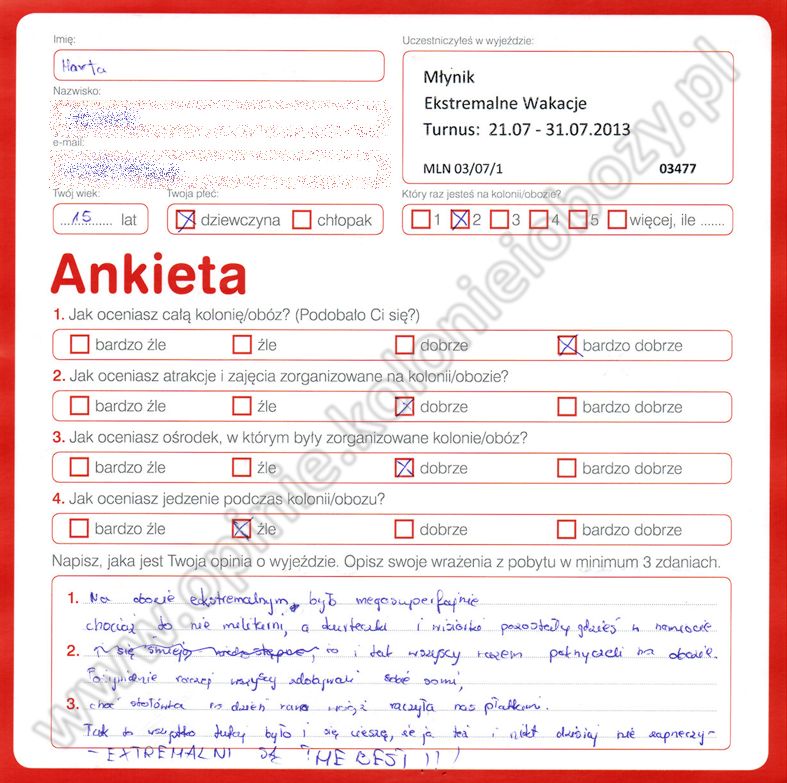 Imię:
Uczestniczyłeś w wyjeździe:
Marta
Młynik
Nazwisko:
Ekstremalne Wakacje
Turnus: 21.07 - 31.07.2013
e-mail:
MLN 03/07/1 03477
Twój wiek: Twoja płeć: Który raz jesteś na kolonii/obozie?
15 lat dziewczyna chłopak 1 2 3 4 5 więcej, ile .......
Ankieta
1. Jak oceniasz całą kolonię/obóz? (Podobało Ci się?)
bardzo źle źle dobrze bardzo dobrze
2. Jak oceniasz atrakcje i zajęcia zorganizowane na kolonii/obozie?
bardzo źle źle dobrze bardzo dobrze
3. Jak oceniasz ośrodek, w którym były zorganizowane kolonie/obóz?
bardzo źle źle dobrze bardzo dobrze
4. Jak oceniasz jedzenie podczas kolonii/obozu?
bardzo źle źle dobrze bardzo dobrze
Napisz, jaka jest Twoja opinia o wyjeździe. Opisz swoje wrażenia z pobytu w minimum 3 zdaniach.
1. Na obozie ekstremalnym, było megasuperfajnie
chociaż to nie militarni, a i pozostały gdzieś w namiocie
2. się śmieją to i tak wszyscy razem na obozie.
Pożywienie raczej wszyscy zdobywali sobie sami,
3. choć stołówka co dzień rano raczyła nas płatkami.
Tak to wszystko było i się cieszę, że ja też i nikt dzisiaj nie zaprzeczy-
- EXTREMALNI SĄ THE BEST !!!
www.opinie.kolonieiobozy.pl